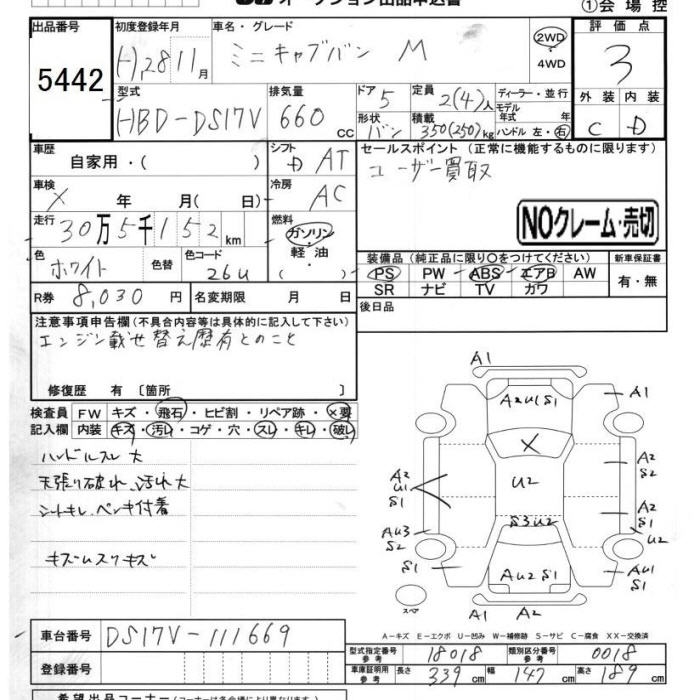 オークション出品申込書
①会場控
出品番号 5442
初度登録年月 H28 11月
車名・グレード ミニキャブバン M
2WD・4WD
評価点 3
型式 HBD-DS17V
排気量 660 cc
ドア 5
定員 2(4)人
ディーラー・並行
モデル年式 年
形状 バン
積載 350(250)kg
ハンドル 左・右
外装 C
内装 D
車歴 自家用・( )
シフト D AT
セールスポイント (正常に機能するものに限ります)
ユーザー買取
車検 × 年 月( 日)
冷房 AC
走行 30万5千152km
燃料 ガソリン・軽油・( )
NOクレーム・売切
色 ホワイト
色替
色コード 26U
装備品(純正品に限り○をつけてください)
新車保証書 有・無
PS PW ABS エアB AW
SR ナビ TV カワ
R券 8,030円
名変期限 月 日
後日品
注意事項申告欄(不具合内容等は具体的に記入して下さい)
エンジン載せ替え歴有とのこと
修復歴 有〔箇所 〕
検査員記入欄
FW キズ・飛石・ヒビ割・リペア跡・×要
内装 キズ・汚れ・コゲ・穴・スレ・キレ・破レ
ハンドルスレ大
天張り破れ、汚れ大
シートキレ、ペンキ付着
キズ
A1
A2U1S1
A1
X
A2
S2
A2
U1
S1
U2
A2
S1
S3U2
U2
AU3
S2
S1
AU2S1
AU1
S1
スペア
A1 A2
A-キズ E-エクボ U-凹み W-補修跡 S-サビ C-腐食 XX-交換済
車台番号 DS17V-111669
型式指定番号 参考 18018
類別区分番号 参考 0018
登録番号
車庫証明用 参考 長さ 339cm 幅 147cm 高さ 189cm
希望出品コーナー(コーナーは各会場により異なります)